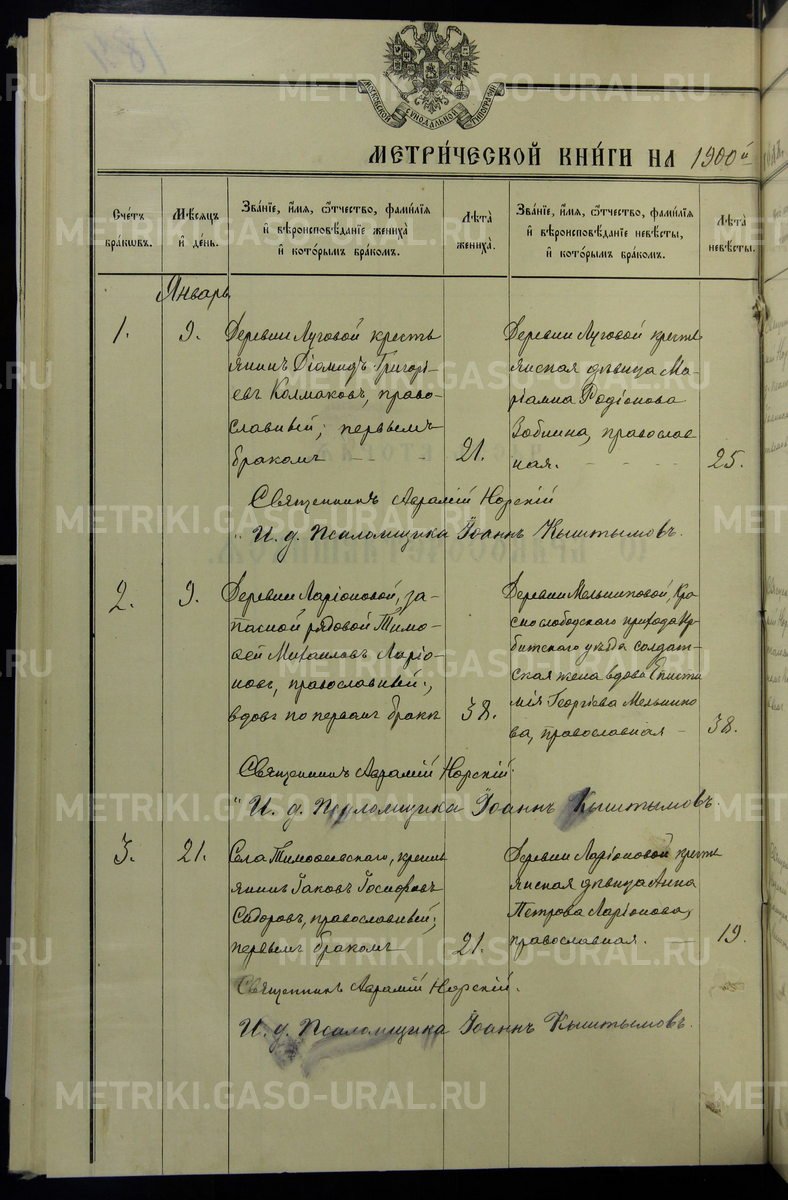 МОСКОВСКОЙ СѴНОДАЛЬНОЙ ТИПОГРАФІИ
МЕТРИ́ЧЕСКОЙ КНИ́ГИ НА 1900й
Счéтъ бра́кѡвъ.
Мѣ́сѧцъ и҆ де́нь.
Зва́нїе, и҆́мѧ, ѻ҆́тчество, фами́лїѧ и҆ вѣроисповѣ́данїе жениха̀ и҆ кото́рымъ бра́комъ.
Лѣ́та жениха̀.
Зва́нїе, и҆́мѧ, ѻ҆́тчество, фами́лїѧ и҆ вѣроисповѣ́данїе невѣ́сты, и҆ кото́рымъ бра́комъ.
Лѣ́та невѣ́сты.
Январь
1.
9.
Деревни Луговой кресть
янинъ Діомидъ Григорі-
евъ Колмаковъ, право-
славный; первымъ
бракомъ
21.
Деревни Луговой кресть
янская дѣвица Ма-
ріамна Родіонова
Зоблина, православ
ная.
25.
Священникъ Аврамій Норскій
И. д. Псаломщика Іоаннъ Кыштымовъ.
2.
9.
Деревни Ларіоновой, за-
пасной рядовой Тимо-
ѳей Михаиловъ Ларіо-
новъ, православный;
вдовъ по первомъ бракѣ
38.
Деревни Мельниковой, Кра
снослободскаго прихода Ир-
битскаго уѣзда солдат-
ская жена вдова Еписти
мія Георгіева Мельнико
ва, православная
38.
Священникъ Аврамій Норскій.
И. д. Псаломщика Іоаннъ Кыштымовъ.
3.
21.
Села Тимоѳеевскаго, кресть
янинъ Іаковъ Іосифовъ
Сидоровъ, православный;
первымъ бракомъ
21.
Деревни Ларіоновой кресть
янская дѣвица Анна
Петрова Ларіонова,
православная.
19.
Священникъ Аврамій Норскій.
И. д. Псаломщика Іоаннъ Кыштымовъ.
METRIKI.GASO-URAL.RU